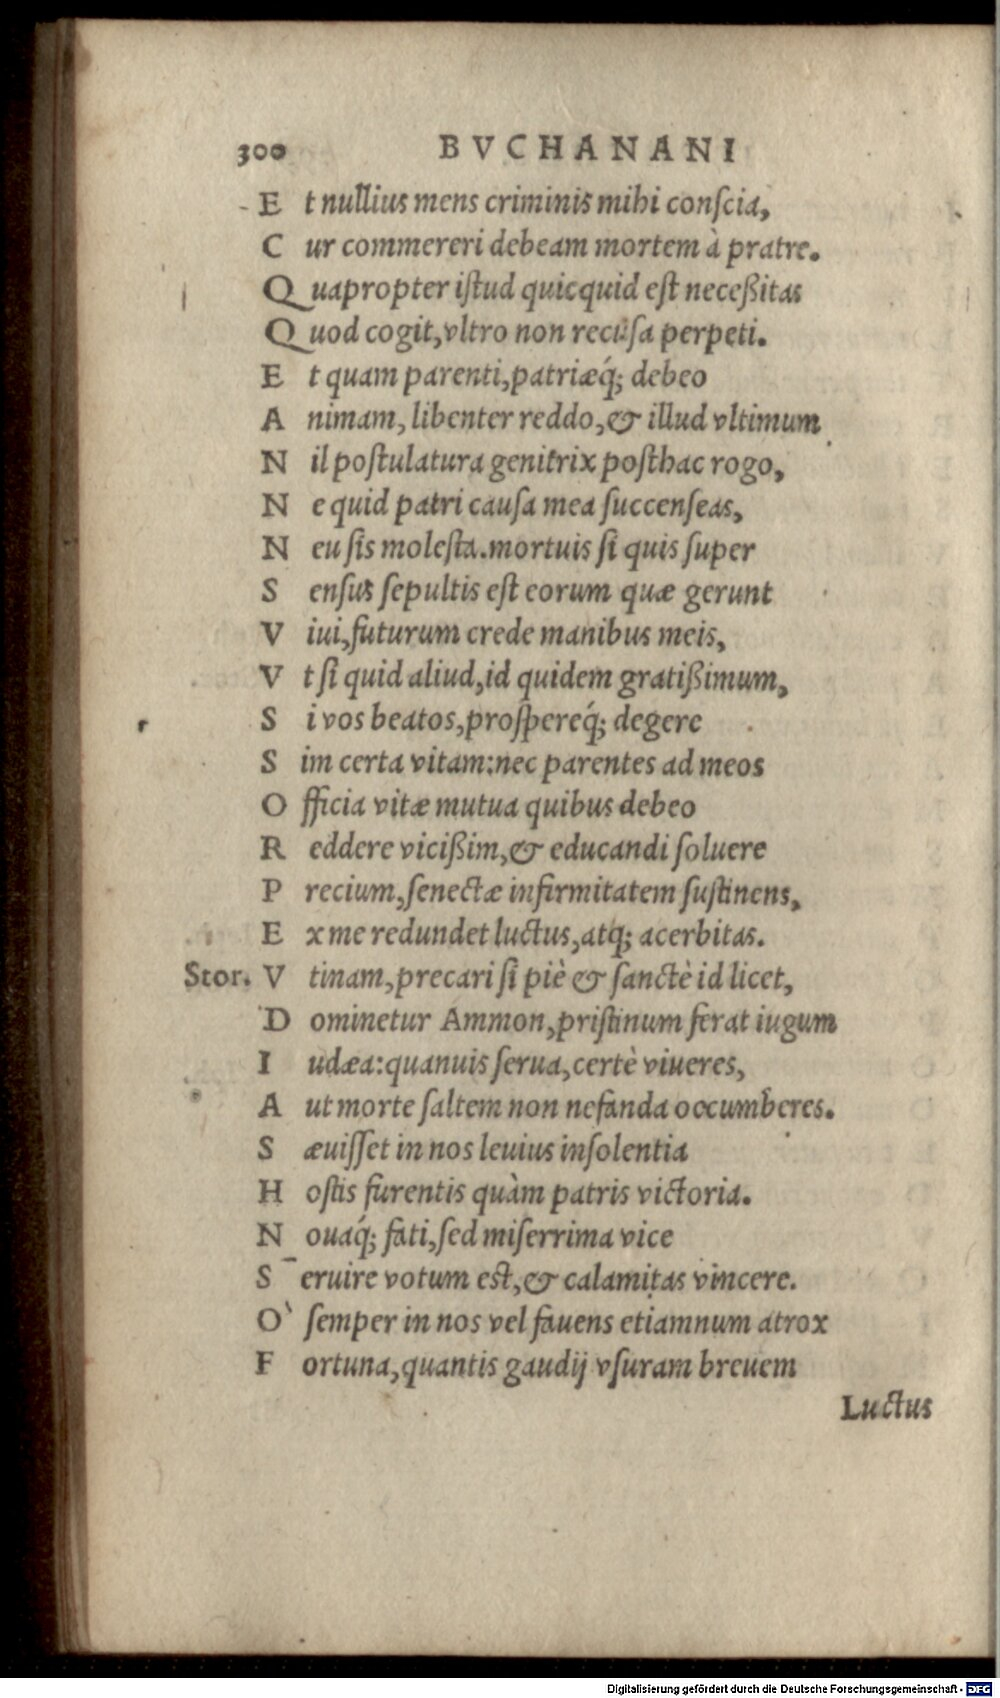 300 BVCHANANI
Et nullius mens criminis mihi conſcia,
Cur commereri debeam mortem à pratre.
Quapropter iſtud quicquid eſt neceßitas
Quod cogit, vltro non recuſa perpeti.
Et quam parenti, patriæq́; debeo
Animam, libenter reddo, & illud vltimum
Nil poſtulatura genitrix poſthac rogo,
Ne quid patri cauſa mea ſuccenſeas,
Neu ſis moleſta. mortuis ſi quis ſuper
Senſus ſepultis eſt eorum quæ gerunt
Viui, futurum crede manibus meis,
Vt ſi quid aliud, id quidem gratißimum,
Si vos beatos, proſpereq́; degere
Sim certa vitam: nec parentes ad meos
Officia vitæ mutua quibus debeo
Reddere vicißim, & educandi ſoluere
Precium, ſenectæ infirmitatem ſuſtinens,
Ex me redundet luctus, atq; acerbitas.
Stor. Vtinam, precari ſi piè & ſanctè id licet,
Dominetur Ammon, priſtinum ferat iugum
Iudæa: quanuis ſerua, certè viueres,
Aut morte ſaltem non nefanda occumberes.
Sæuiſſet in nos leuius inſolentia
Hoſtis furentis quàm patris victoria.
Nouaq́; fati, ſed miſerrima vice
Seruire votum est, & calamitas vincere.
O` ſemper in nos vel fauens etiamnum atrox
Fortuna, quantis gaudij vſuram breuem
Luctus
Digitalisierung gefördert durch die Deutsche Forschungsgemeinschaft - DFG